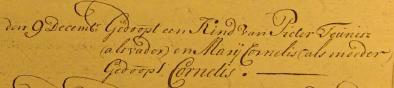 den 9 Decembr Gedoopt een Kind van Pieter Teunisz
(als vader) en Marij Cornelis (als moeder)
Gedoopt. Cornelis.